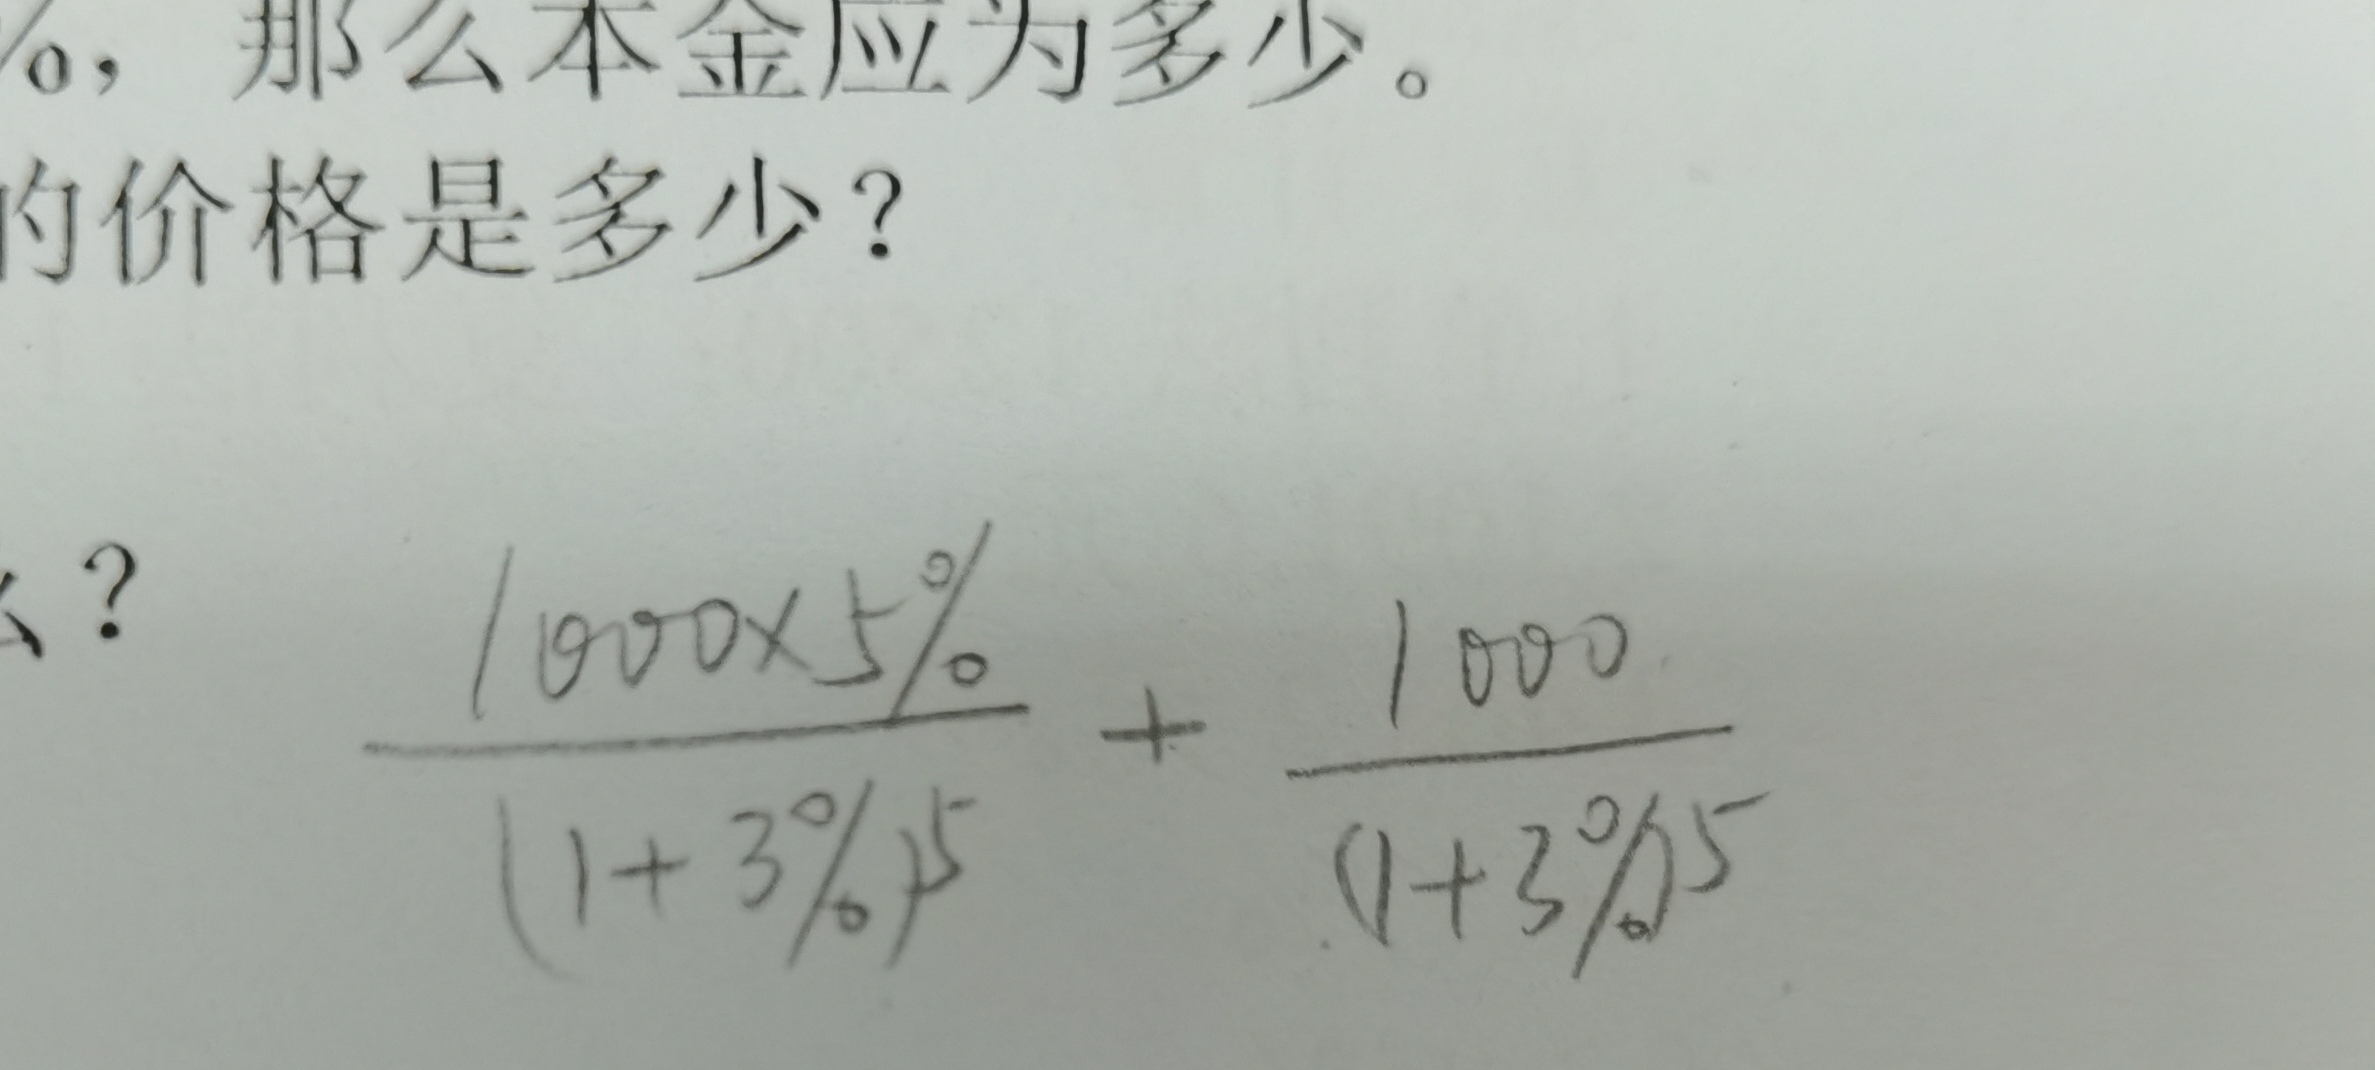 %，那么本金应为多少。
的价格是多少？
么？
1000×5% + 1000
(1+3%)5 (1+3%)5